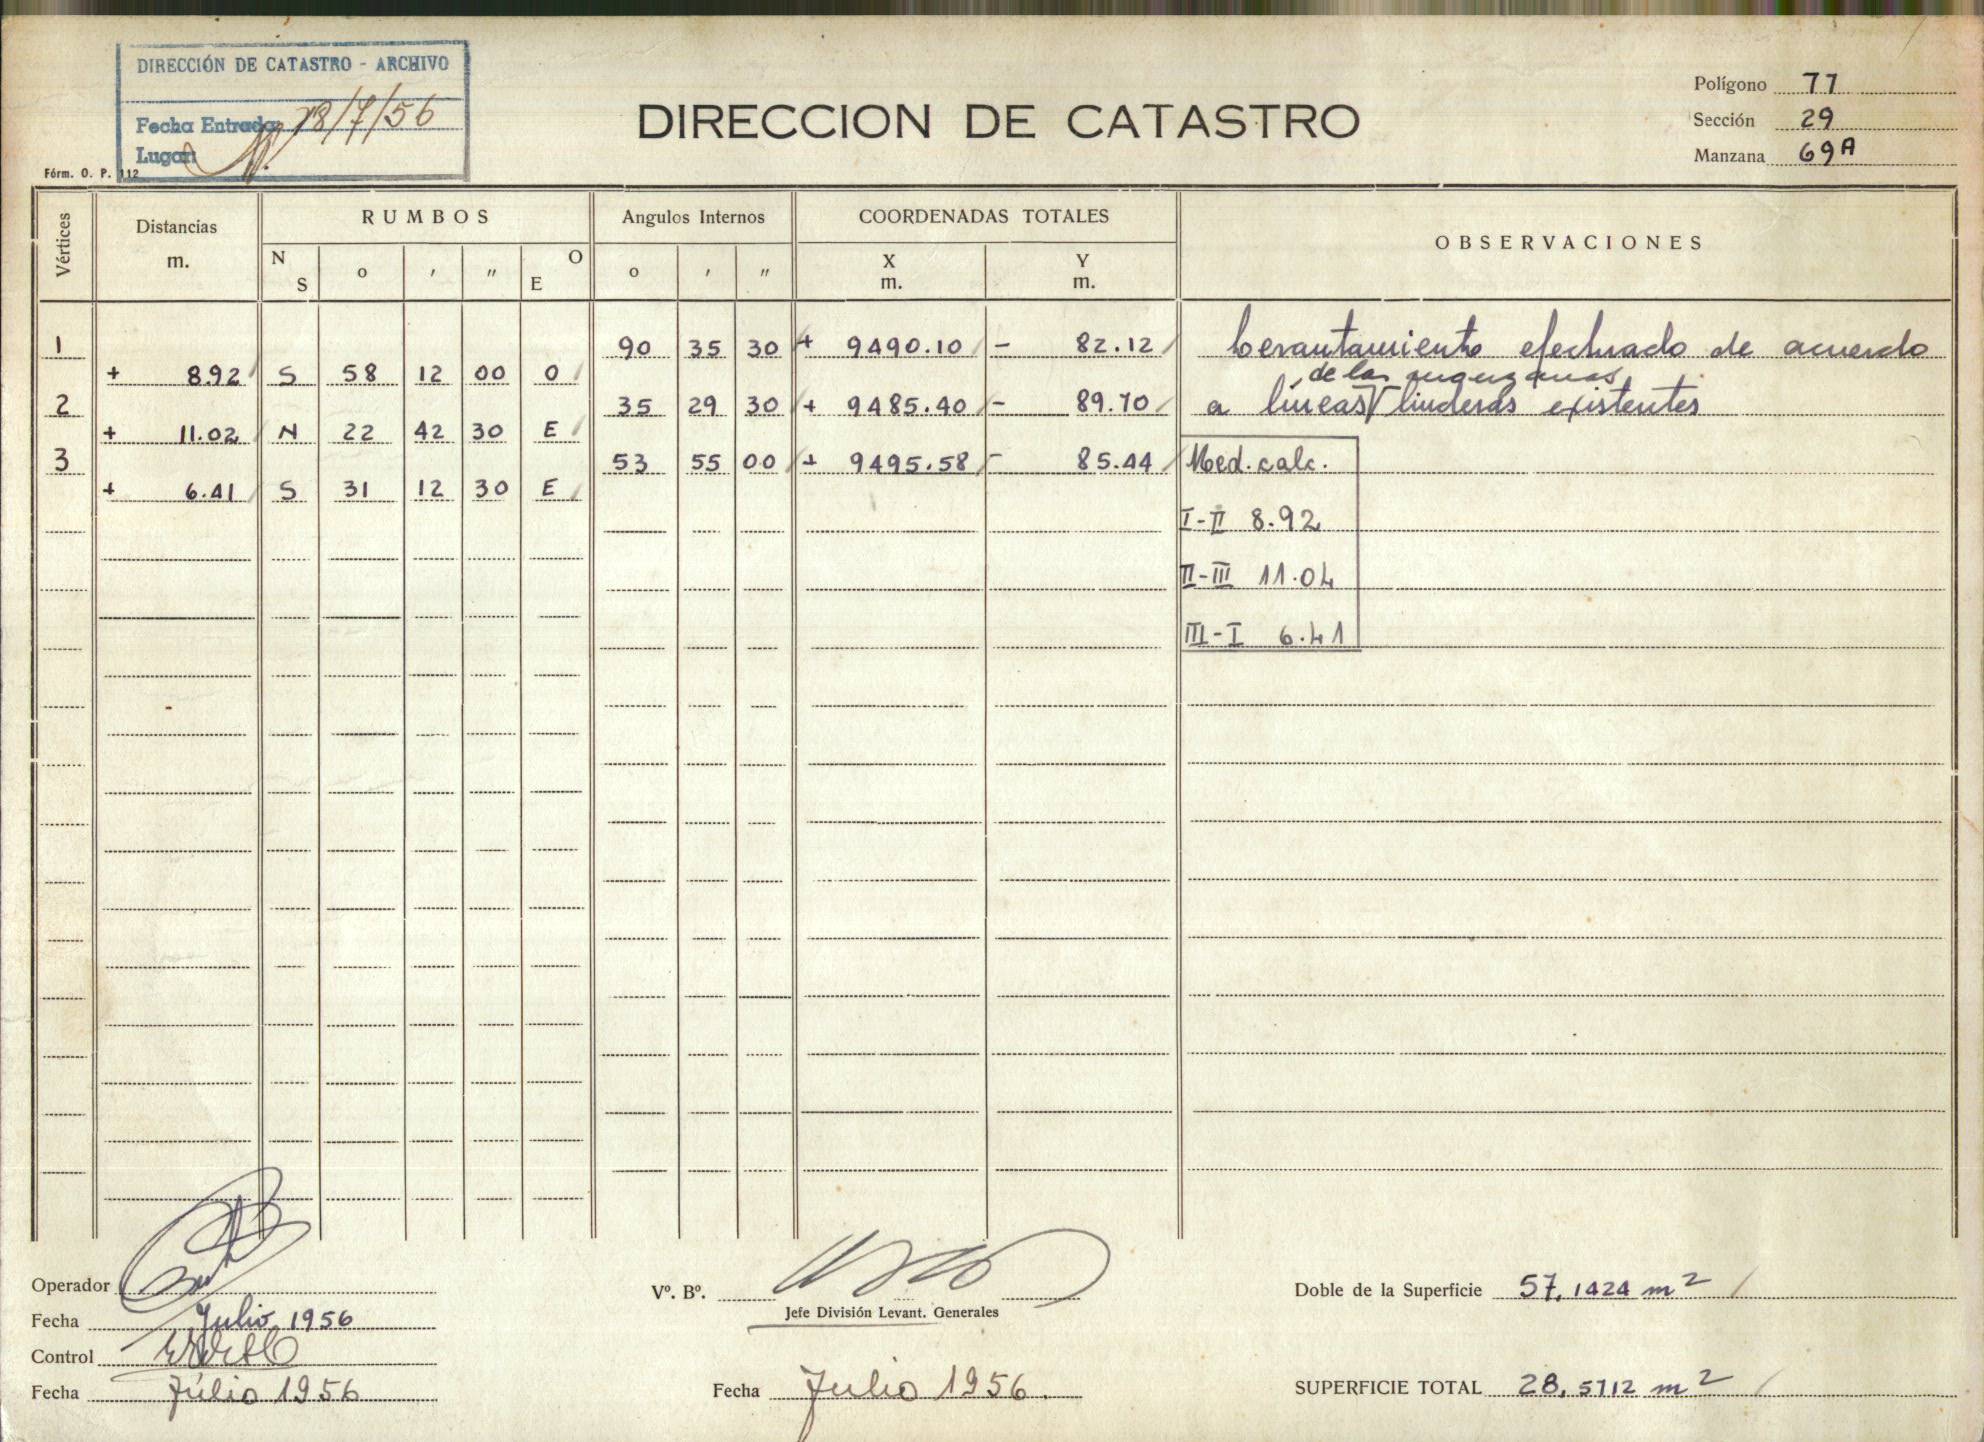 DIRECCIÓN DE CATASTRO - ARCHIVO
Fecha Entrada 18/7/56
Lugar
Fórm. O. P. 112
DIRECCION DE CATASTRO
Polígono 77
Sección 29
Manzana 69A
Vértices
Distancias
m.
RUMBOS
N
S
o
,
,,
O
E
Angulos Internos
o
,
,,
COORDENADAS TOTALES
X
m.
Y
m.
OBSERVACIONES
1 90 35 30 + 9490.10 - 82.12 Levantamiento efectuado de acuerdo
+ 8.92 S 58 12 00 O
de las manzanas
2 35 29 30 + 9485.40 - 89.70 a líneas linderas existentes
+ 11.02 N 22 42 30 E
3 53 55 00 + 9495.58 - 85.44 Med. calc.
+ 6.41 S 31 12 30 E
I-II 8.92
II-III 11.04
III-I 6.41
Operador
Fecha Julio 1956
Control
Fecha Júlio 1956
Vº. Bº.
Jefe División Levant. Generales
Fecha Julio 1956.
Doble de la Superficie 57,1424 m2
SUPERFICIE TOTAL 28,5712 m2